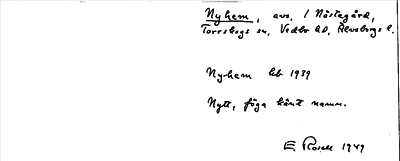 Nyhem, avs. / Nästegård,
Torrskogs sn, Vedbo hd, Älvsborgs l.
Nyhem bb 1939
Nytt, föga känt namn.
E Rosell 1949